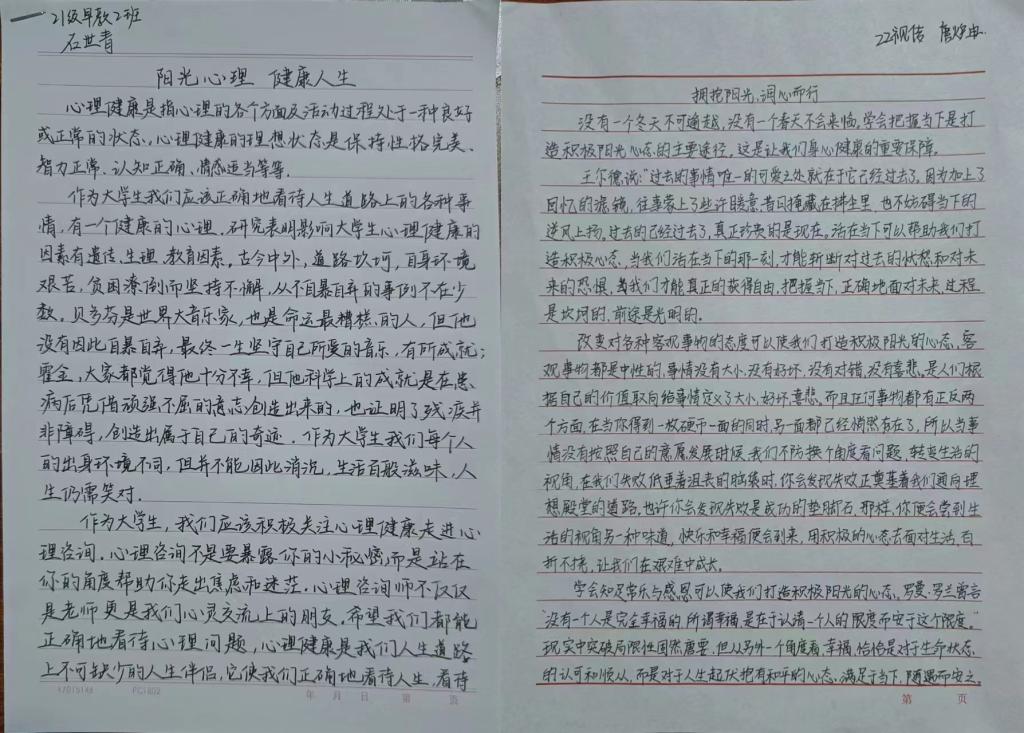 21级早教2班
石世青
阳光心理 健康人生
心理健康是指心理的各个方面及活动过程处于一种良好
或正常的状态,心理健康的理想状态是保持性格完美、
智力正常、认知正确、情感适当等等。
作为大学生我们应该正确地看待人生道路上的各种事
情,有一个健康的心理。研究表明影响大学生心理健康的
因素有遗传、生理、教育因素。古今中外,道路坎坷,自身环境
艰苦,贫困潦倒而坚持不懈,从不自暴自弃的事例不在少
数。贝多芬是世界大音乐家,也是命运最糟糕的人,但他
没有因此自暴自弃,最终一生坚守自己所爱的音乐,有所成就;
霍金,大家都觉得他十分不幸,但他科学上的成就是在患
病后凭借顽强不屈的意志创造出来的,也证明了残疾并
非障碍,创造出属于自己的奇迹。作为大学生我们每个人
的出身环境不同,但并不能因此消沉,生活百般滋味,人
生仍需笑对.
作为大学生,我们应该积极关注心理健康走进心
理咨询.心理咨询不是要暴露你的小秘密,而是站在
你的角度帮助你走出焦虑和迷茫.心理咨询师不仅仅
是老师更是我们心灵交流上的朋友.希望我们都能
正确地看待心理问题,心理健康是我们人生道路
上不可缺少的人生伴侣,它使我们正确地看待人生,看待
年 月 日 第 页
22视传 唐
拥抱阳光,调心而行
没有一个冬天不可逾越,没有一个春天不会来临,学会把握当下是打
造积极阳光心态的主要途径,这是让我们身心健康的重要保障。
王尔德说:"过去的事情唯一的可爱之处就在于它已经过去了,因为加上了
回忆的滤镜,往事蒙上了些许暖意,昔日掩藏在抽尘里,也不妨碍当下的
逆风上扬。过去的已经过去了,真正珍贵的是现在。活在当下可以帮助我们打
造积极心态,当我们活在当下的那一刻,才能斩断对过去的忧愁和对未
来的恐惧,我们才能真正的获得自由,把握当下,正确地面对未来,过程
是坎坷的,前途是光明的。
改变对各种客观事物的态度可以使我们打造积极阳光的心态,客
观事物都是中性的,事情没有大小,没有好坏,没有对错,没有喜悲,是人们根
据自己的价值取向给事情定义了大小,好坏,喜悲,而且任何事物都有正反两
个方面,在当你得到一枚硬币一面的同时,另一面都已经悄然存在了,所以当事
情没有按照自己的意愿发展时候,我们不防换个角度看问题,转变生活的
视角,在我们失败低垂着沮丧的脑袋时,你会发现失败正奠基着我们通向理
想殿堂的道路,也许你会发现失败是成功的垫脚石,那样,你便会尝到生
活的视角另一种味道,快乐和幸福便会到来,用积极的心态去面对生活,百
折不挠,让我们在艰难中成长。
学会知足常乐与感恩可以使我们打造积极阳光的心态,罗曼·罗兰曾言
"没有一个人是完全幸福的,所谓幸福,是在于认清一个人的限度而安于这个限度."
现实中突破局限性固然需要,但从另外一个角度看,幸福恰恰是对于生命状态,
的认可和顺从,而是对于人生起伏抱有和平的心态,满足于当下,随遇而安之。
第 页